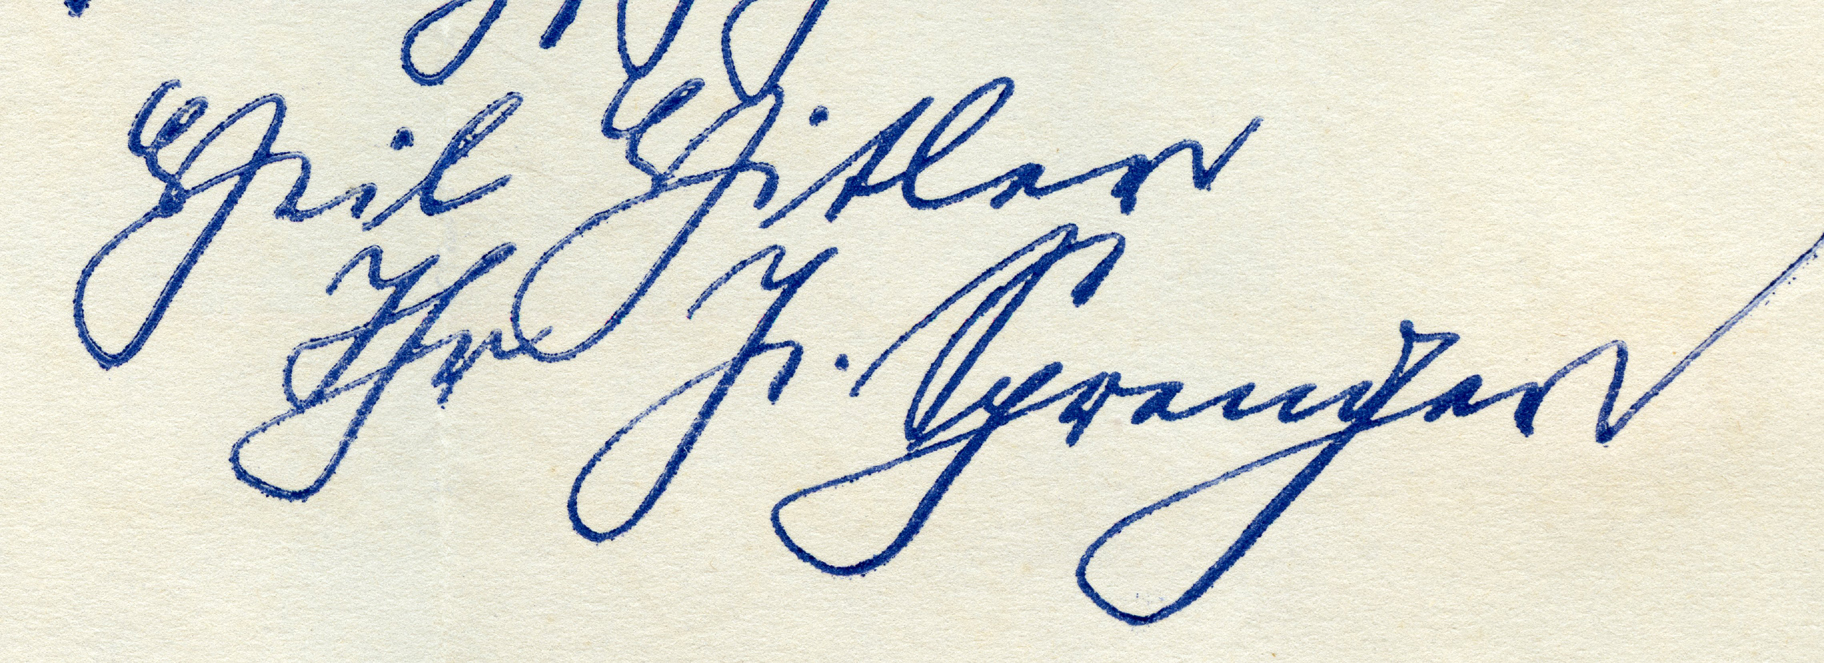 Heil Hitler
Ihr J. Sprenger